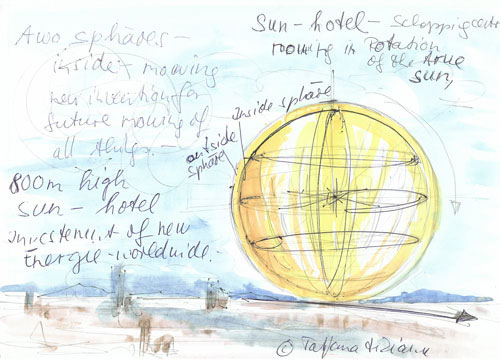 Awo sphäres-
inside + mooving
new invention for
future mooving of
all things.-
800m high
sun-hotel
investement of new
Energie-worldwide.
Sun-hotel-
mooving in Rotation
of the true
sun,
Inside sphäre
outside
sphäre
© Tatjana